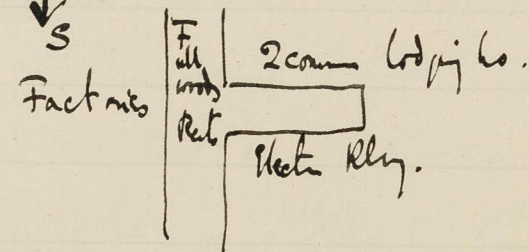 S
Factories
Fullwoods Rents
2 common lodging ho.
Electric Rlwy.